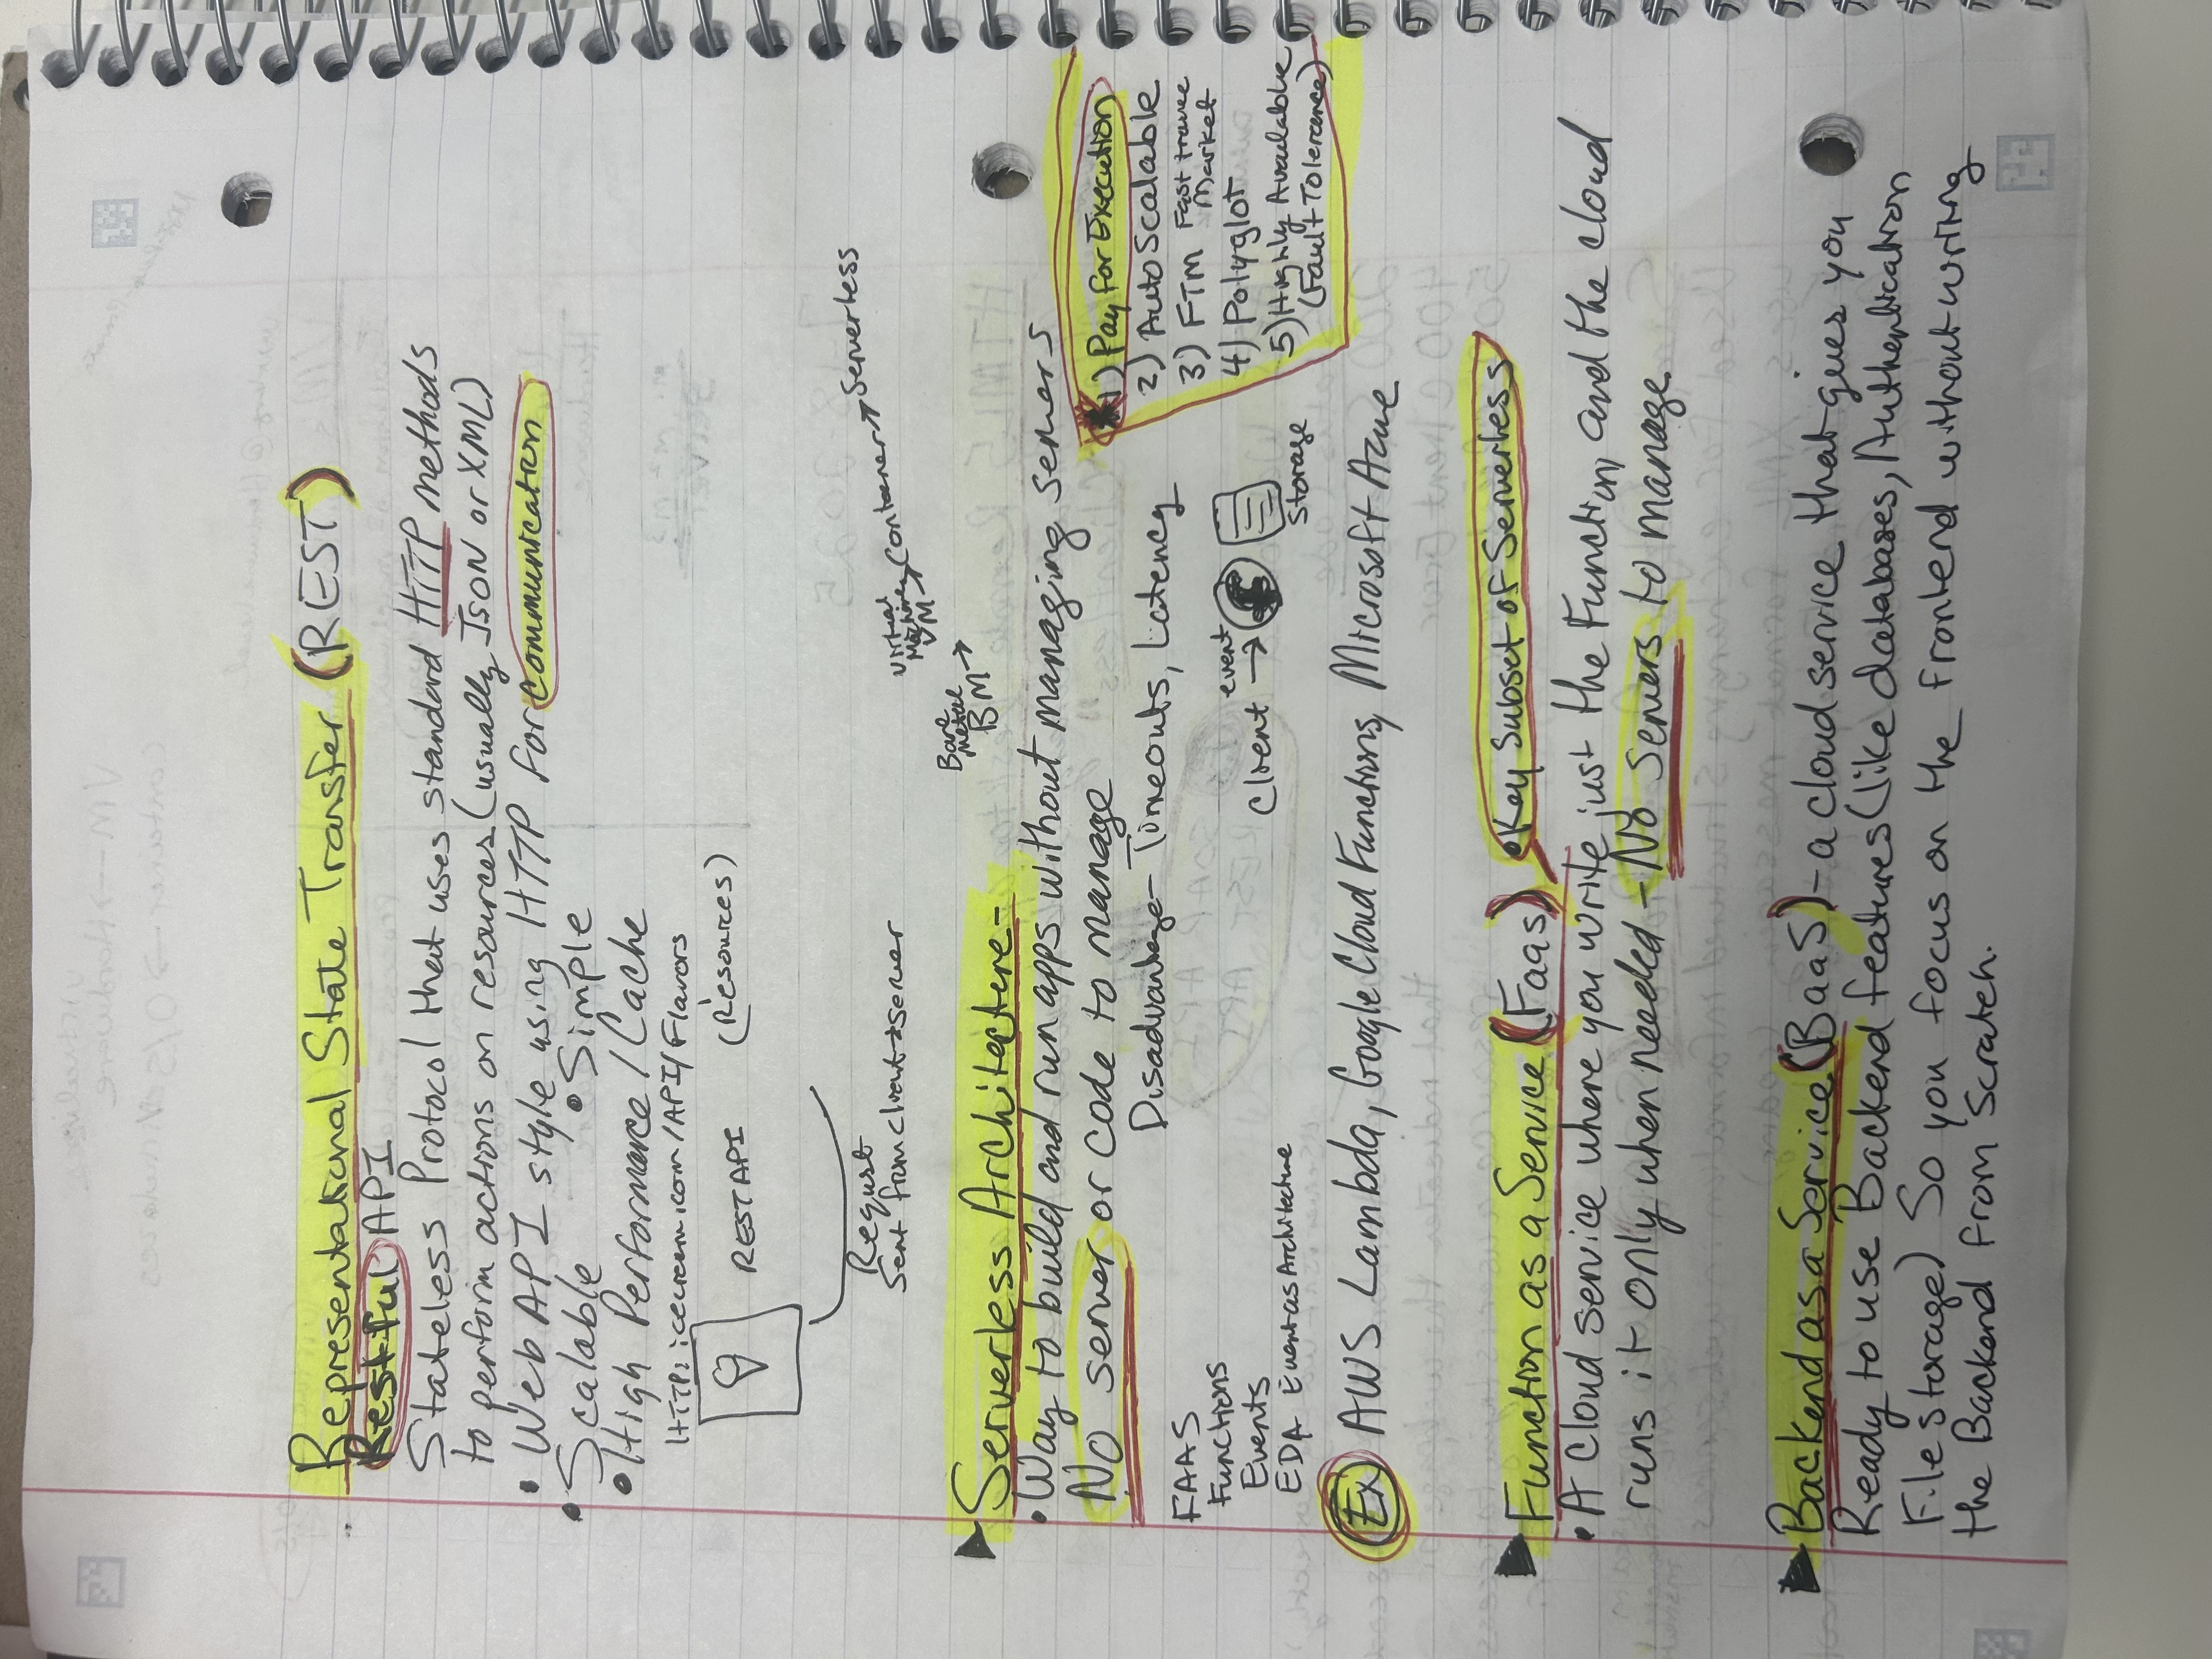 Representational State Transfer (REST)
Restful API
Stateless Protocol that uses standard HTTP methods
to perform actions on resources (usually JSON or XML)
• Web API style using HTTP for communication
• Scalable • Simple
• High Performance / Cache
HTTP: icecream.com/API/Flavors
REST API (Resources)
Requst
Sent from client → server
Bare Metal BM → Virtual Machine VM → Container → Serverless
Serverless Architecture-
• Way to build and run apps without managing servers
No server or code to manage
Disadvantage- Timeouts, Latency
1) Pay for Execution
2) Auto Scalable
3) FTM Fast Market
4) Polyglot
5) Highly Available
(Fault Tolerance)
FAAS
Functions
Events
EDA Event as Architecture
Client event →
Storage
Ex) AWS Lambda, Google Cloud Functions, Microsoft Azure
Function as a Service (Faas) • Key Subset of Serverless
• A Cloud service where you write just the Function, and the cloud
runs it only when needed - No Servers to manage.
Backend as a Service (BaaS) - a cloud service that gives you
Ready to use Backend features (like databases, Authentication
File storage) So you focus on the Frontend without writing
the Backend from Scratch.